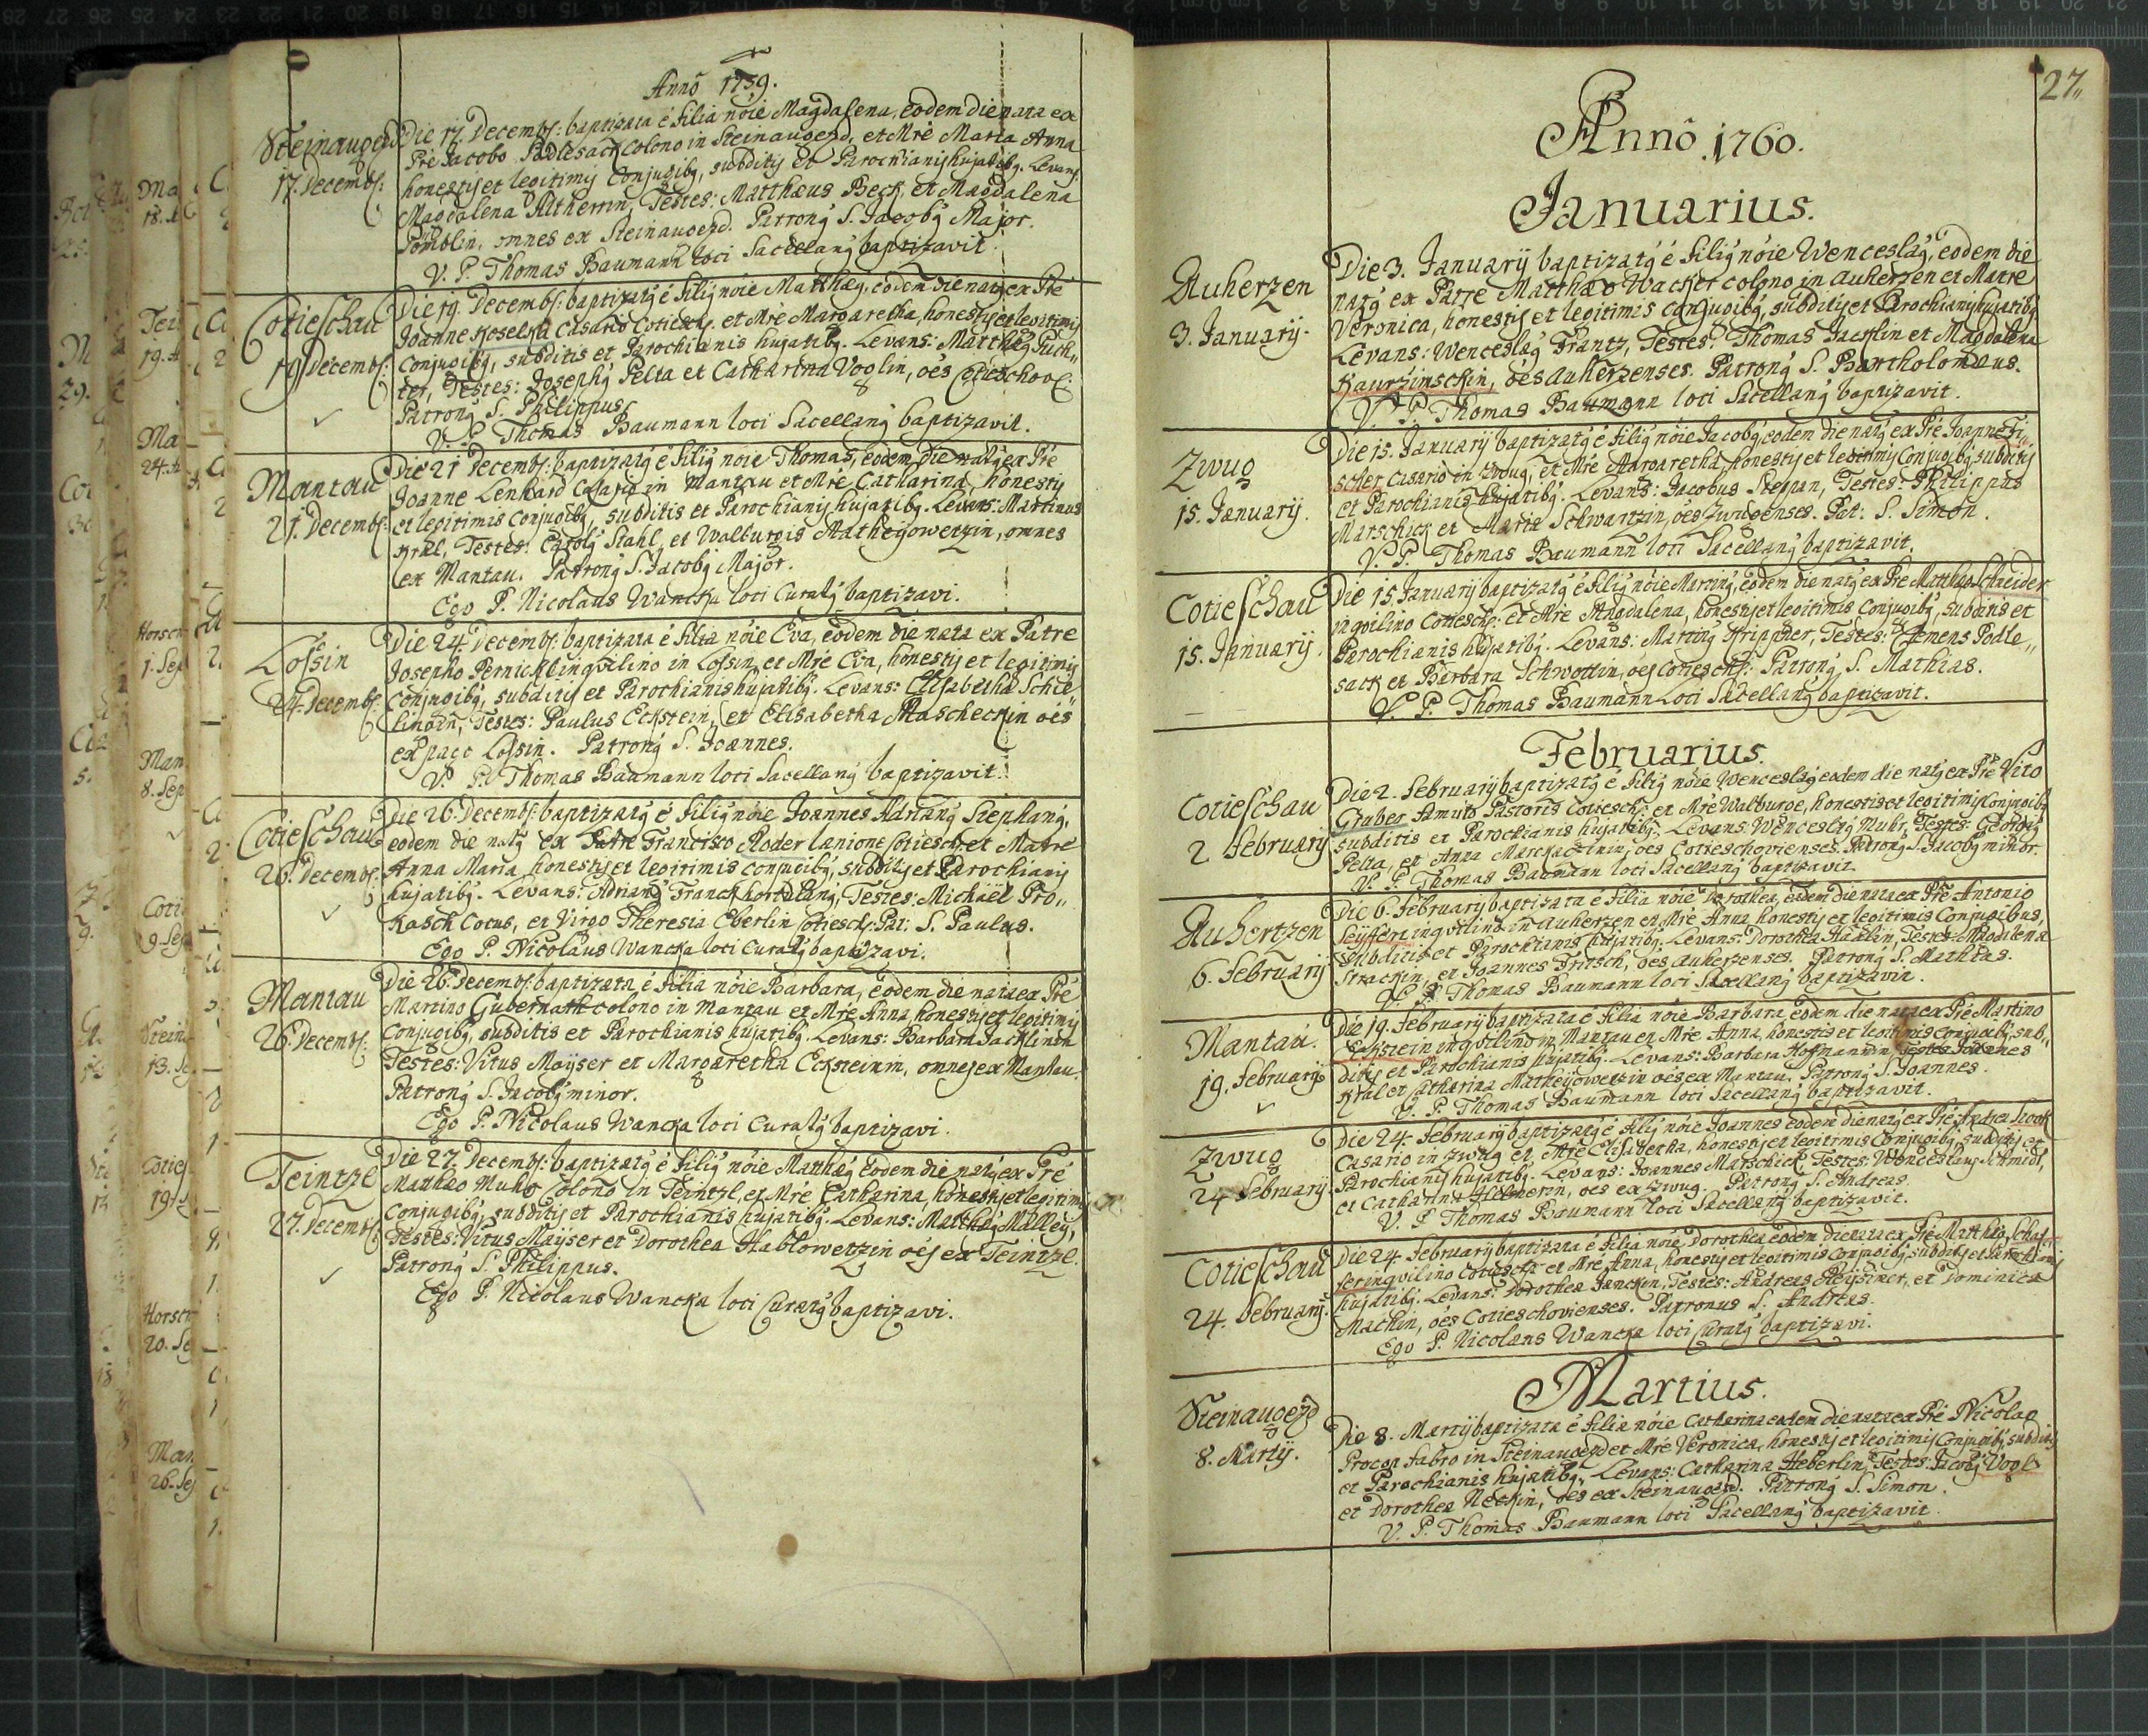 Anno 1759.
Steinaugezd
17. Decemb:
Die 17. Decemb: baptizata ē filia noie Magdalena, eodem die nata ex
Pre Jacobo Podlesack colono in Steinaugezd, et Mre Maria Anna
honestis et legitimis Conjugibg, subditis et Parochianis hujatibg. Levans:
Magdalena Altherrin, Testes: Matthæus Beck, et Magdalena
omnes ex Steinaugezd. Patrong S. Jacobg Major.
V. P. Thomas Baumann loci Sacellang baptizavit.
Cotieschau
19 Decemb:
Die 19. Decemb: baptizatg ē filig noie Matthæg, eodem die natg ex Pre
Joanne Koselka Casario Cotiesch. et Mre Margaretha, honestis et legitimis
Conjugibg, subditis et Parochianis hujatibg. Levans: Matthæg Puch„
ter, Testes: Josephg Pelta et Catharina Voglin, oēs Cotieschov:
Patrong S. Philippus.
V. P. Thomas Baumann loci Sacellang baptizavit.
Mantau
21. Decemb:
Die 21 Decemb: baptizatg ē filig noie Thomas, eodem die natg ex Pre
Joanne Lenhard Casario in Mantau et Mre Catharina, honestis
et legitimis Conjugibg, subditis et Parochianis hujatibg. Levans: Martinus
Kral, Testes: Carolg Stahl, et Walburgis Matheyowetzin, omnes
ex Mantau. Patrong S. Jacobg Major.
Ego P. Nicolaus Wancka loci Curatg baptizavi.
Lossin
24. Decemb:
Die 24. Decemb: baptizata ē filia noie Eva, eodem die nata ex Patre
Josepho Pernickl inqvilino in Lossin, et Mre Eva, honestis et legitimis
Conjugibg, subditis et Parochianis hujatibg. Levans: Elisabetha Schil„
lingin, Testes: Paulus Eckstein, et Elisabetha Mascheckin oēs
ex pago Lossin. Patrong S. Joannes.
V. P. Thomas Baumann loci Sacellang baptizavit.
Cotieschau
26. Decemb:
Die 26. Decemb: baptizatg ē filig noie Joannes Adriang Stephang,
eodem die natg ex Patre Francisco Roder Lanione Cotiesch. et Matre
Anna Maria, honestis et legitimis conjugibg, subditis et Parochianis
hujatibg. Levans: Adriang Franck hortulang, Testes: Michaël Pro„
kasch Cocus, et Virgo Theresia Eberlin Cotiesch. Pat: S. Paulus.
Ego P. Nicolaus Wancka loci Curatg baptizavi.
Mantau
26. Decemb:
Die 26. Decemb: baptizata ē filia noie Barbara, eodem die nata ex Pre
Martino Gubernath colono in Mantau et Mre Anna honestis et legitimis
Conjugibg, subditis et Parochianis hujatibg. Levans: Barbara Jacklinin
Testes: Vitus Mayser et Margaretha Ecksteinin, omnes ex Mantau.
Patrong S. Jacobg minor.
Ego P. Nicolaus Wancka loci Curatg baptizavi.
Teintzl
27. Decemb:
Die 27. Decemb: baptizatg ē filig noie Matthæg eodem die natg ex Pre
Mathæo Muhr Colono in Teintzl, et Mre Catharina, honestis et legitimis
Conjugibg, subditis et Parochianis hujatibg. Levans: Matthæg Malleg,
Testes: Vitus Mayser et Dorothea Hablowetzin oēs ex Teintzl.
Patrong S. Philippus.
Ego P. Nicolaus Wancka loci Curatg baptizavi.
27„
Anno 1760.
Januarius.
Auherzen
3. Januarij.
Die 3. Januarij baptizatg ē filig noie Wenceslag, eodem die
natg ex Patre Matthæo Wacker colono in Auherzen et Matre
Veronica, honestis et legitimis conjugibg, subditis et Parochianis hujatibg
Levans: Wenceslag Frantz, Testes: Thomas Jacklin et Magdalena
Kaurzimsckin, oēs Auherzenses. Patrong S. Bartholomæus.
V. P. Thomas Baumann loci Sacellang baptizavit.
Zwug
15. Januarij.
Die 15. Januarij baptizatg ē filig noie Jacobg, eodem die natg ex Pre Joanne Fi„
scher Casario in Zwug, et Mre Margaretha, honestis et legitimis Conjugibg subditis
et Parochianis hujatibg. Levans: Jacobus Steppan, Testes: Philippus
Marschick et Maria Schwartzin, oēs Zwugenses. Pat: S. Simon.
V. P. Thomas Baumann loci Sacellang baptizavit.
Cotieschau
15. Januarij.
Die 15. Januarij baptizatg ē filig noie Marting, eodem die natg ex Pre Matthæo Schneider
inqvilino Cotiesch: et Mre Magdalena, honestis et legitimis Conjugibg, subditis et
Parochianis hujatibg. Levans: Marting Krippner, Testes: Clemens Podle„
sack et Barbara Schwottin, oēs Cotiesch: Patrong S. Mathias.
V. P. Thomas Baumann Loci Sacellang baptizavit.
Februarius.
Cotieschau
2 Februarij
Die 2. Februarij baptizatg ē filig noie Wenceslag eodem die natg ex Pre Vito
Gruber famulo Pastoris Cotiesch: et Mre Walburge, honestis et legitimis Conjugibg
subditis et Parochianis hujatibg. Levans: Wenceslag Muhr, Testes: Georgig
Pelta, et Anna oēs Cotieschovienses. Patrong S. Jacobg minor.
V. P. Thomas Baumann loci Sacellang baptizavit.
Auhertzen
6. Februarij
Die 6. Februarij baptizata ē filia noie Dorothea, eodem die nata ex Pre Antonio
Seyffert inqvilino in Auherzen et Mre Anna honestis et legitimis Conjugibus,
subditis et Parochianis hujatibg. Levans: Dorothea Testes: Magdalena
Strackin, et Joannes Fritsch, oēs Auherzenses. Patrong S. Mathias.
V. P. Thomas Baumann loci Sacellang baptizavit.
Mantau.
19. Februarij
Die 19. Februarij baptizata ē filia noie Barbara eodem die nata ex Pre Martino
Eckstein inqvilino in Mantau et Mre Anna, honestis et legitimis Conjugibg, sub„
ditis et Parochianis hujatibg. Levans: Barbara Hoffmannin, Testes Joannes
Kral et Catharina Matheyowetzin oēs ex Mantau. Patrong S. Joannes.
V. P. Thomas Baumann loci Sacellang baptizavit.
Zwug
24 Februarij
Die 24. Februarij baptizatg ē filig noie Joannes eodem die natg ex Pre Andrea Hook
Casario in Zwug et Mre Elisabetha, honestis et legitimis Conjugibg, subditis et
Parochianis hujatibg. Levans: Joannes Marschick, Testes: Wenceslaus Schmidt,
et Catharina oēs ex Zwug. Patrong S. Andreas.
V. P Thomas Baumann loci Sacellang baptizavit.
Cotieschau
24. Februarij.
Die 24. Februarij baptizata ē filia noie Dorothea eodem die nata ex Pre Matthæo Schaf„
fer inqvilino Cotiesch: et Mre Anna, honestis et legitimis Conjugibg, subditis et Parochianis
hujatibg. Levans: Dorothea Janckin, Testes: Andreas et Dominica
Machin, oēs Cotieschovienses. Patronus S. Andreas.
Ego P. Nicolaus Wancka loci Curatg baptizavi.
Martius.
Steinaugezd
8. Martij.
Die 8. Martij baptizata ē filia noie Catharina eodem die nata ex Pre Nicolao
Procop fabro in Steinaugezd et Mre Veronica, honestis et legitimis Conjugibg, subditis
et Parochianis hujatibg. Levans: Catharina Heberlin, Testes: Jacobg Vogl
et Dorothea Neckin, oēs ex Steinaugezd. Patrong S. Simon.
V. P. Thomas Baumann loci Sacellang baptizavit.